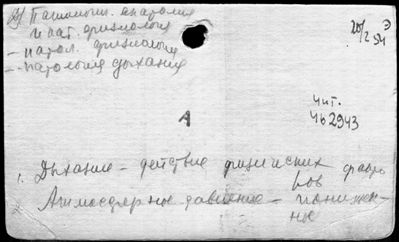 Патологич. анатомия
и пат. физиология
— патол. физиология
— патология дыхания
20/2 54
Э
А
Чит.
462943
1. Дыхание — действие физических факто
ров
2. Атмосферное давление — понижен-
ное